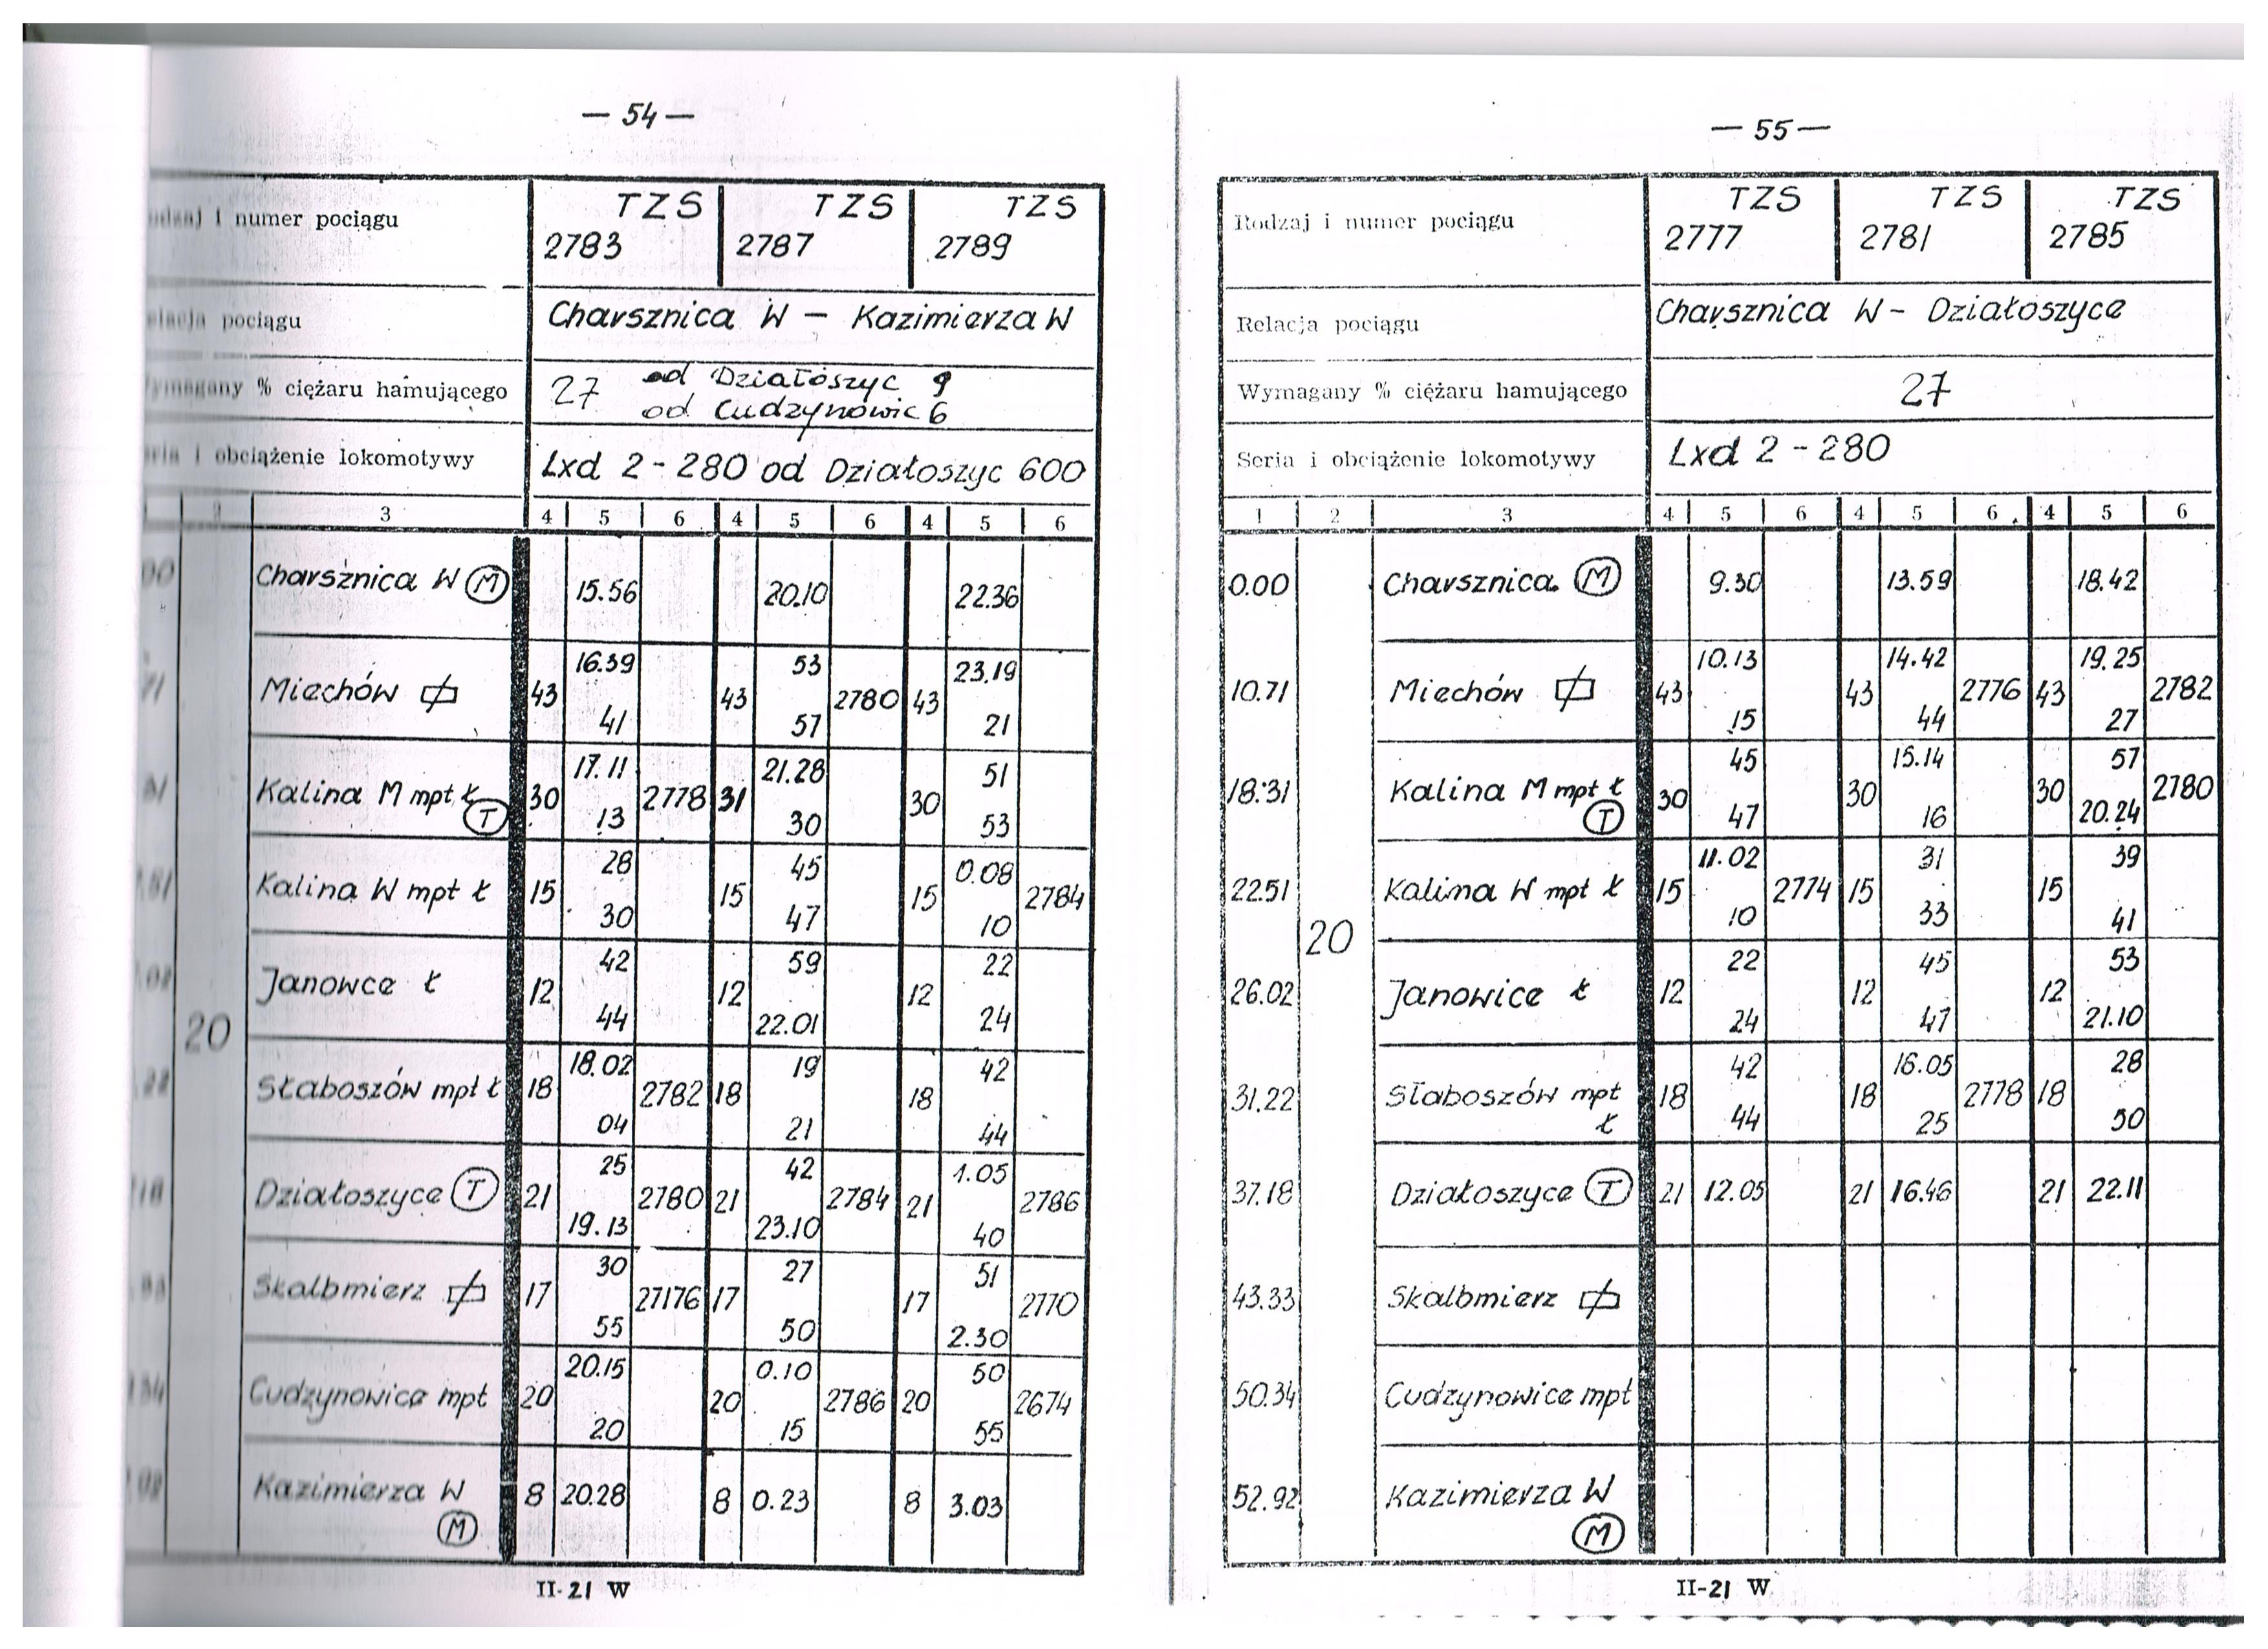 — 54 —
i numer pociągu
TZS TZS TZS
2783 2787 2789
pociągu
Charsznica W — Kazimierza W
% ciężaru hamującego
27 od Działoszyc 9
od Cudzynowic 6
i obciążenie lokomotywy
Lxd 2 - 280 od Działoszyc 600
3 4 5 6 4 5 6 4 5 6
Charsznica W (M) 15.56 20.10 22.36
16.39 53 23.19
Miechów 43 43 2780 43
41 57 21
17.11 21.28 51
Kalina M mpt ł (T) 30 2778 31 30
13 30 53
28 45 0.08
Kalina W mpt ł 15 15 15 2784
30 47 10
42 59 22
Janowce ł 12 12 12
44 22.01 24
20
18.02 19 42
Słaboszów mpt ł 18 2782 18 18
04 21 44
25 42 1.05
Działoszyce (T) 21 2780 21 2784 21 2786
19.13 23.10 40
30 27 51
Skalbmierz 17 27176 17 17 2770
55 50 2.30
20.15 0.10 50
Cudzynowice mpt 20 20 2786 20 2674
20 15 55
Kazimierza W (M) 8 20.28 8 0.23 8 3.03
II-21 W
— 55 —
Rodzaj i numer pociągu
TZS TZS TZS
2777 2781 2785
Relacja pociągu
Charsznica W - Działoszyce
Wymagany % ciężaru hamującego
27
Seria i obciążenie lokomotywy
Lxd 2 - 280
1 2 3 4 5 6 4 5 6 4 5 6
0.00 Charsznica (M) 9.30 13.59 18.42
10.13 14.42 19.25
10.71 Miechów 43 43 2776 43 2782
15 44 27
45 15.14 57
18.31 Kalina M mpt ł (T) 30 30 30 2780
47 16 20.24
11.02 31 39
22.51 Kalina W mpt ł 15 2774 15 15
10 33 41
20
22 45 53
26.02 Janowice ł 12 12 12
24 47 21.10
42 16.05 28
31.22 Słaboszów mpt ł 18 18 2778 18
44 25 50
37.18 Działoszyce (T) 21 12.05 21 16.46 21 22.11
43.33 Skalbmierz
50.34 Cudzynowice mpt
52.92 Kazimierza W (M)
II-21 W